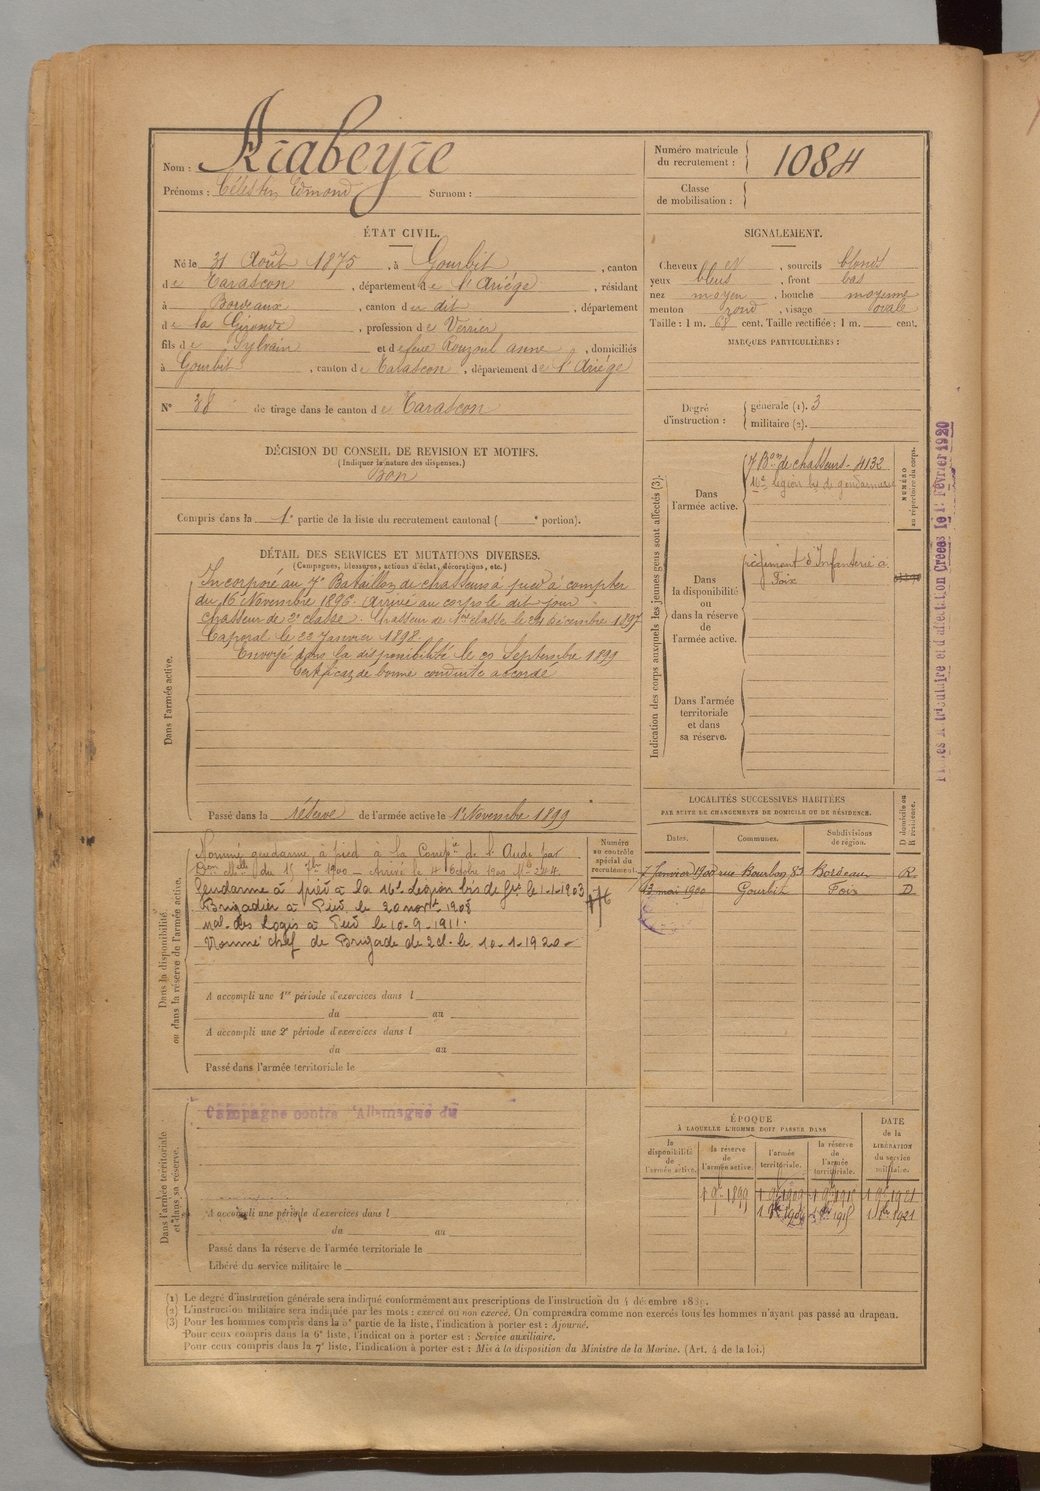 Nom : Arabeyre
Prénoms : Célestin Edmond Surnom :
Numéro matricule
du recrutement : 1084
Classe
de mobilisation :
ÉTAT CIVIL.
Né le 31 Août 1875, à Gourbit, canton
de Tarascon, département de l'Ariége, résidant
à Bordeaux, canton de dit, département
de la Gironde, profession de Verrier
fils de Sylvain et de feue Rouzoul anne, domiciliés
à Gourbit, canton de Tarascon, département de l'Ariége
N° 38 de tirage dans le canton de Tarascon
SIGNALEMENT.
Cheveux et, sourcils blonds
yeux bleus, front bas
nez moyen, bouche moyenne
menton rond, visage ovale
Taille : 1 m. 68 cent. Taille rectifiée : 1 m. cent.
MARQUES PARTICULIÈRES :
Degré
d'instruction :
générale (1). 3
militaire (2).
DÉCISION DU CONSEIL DE REVISION ET MOTIFS.
(Indiquer la nature des dispenses.)
Bon
Compris dans la 1e partie de la liste du recrutement cantonal ( e portion).
DÉTAIL DES SERVICES ET MUTATIONS DIVERSES.
(Campagnes, blessures, actions d'éclat, décorations, etc.)
Dans l'armée active.
Incorporé au 7e Bataillon de chasseurs à pied à compter
du 16 Novembre 1896. Arrivé au corps le dit jour
chasseur de 2e classe. Chasseur de 1re classe le 21 décembre 1897
Caporal le 22 Janvier 1898.
Envoyé dans la disponibilité le 20 Septembre 1899
Certificat de bonne conduite accordé
Passé dans la réserve de l'armée active le 1 Novembre 1899
Indication des corps auxquels les jeunes gens sont affectés (3).
Dans
l'armée active.
7 Bon de chasseurs - 4132
16e légion bis de gendarmerie
NUMÉRO
au répertoire du corps.
Dans
la disponibilité
ou
dans la réserve
de
l'armée active.
régiment d'Infanterie à
Foix
Dans l'armée
territoriale
et dans
sa réserve.
LOCALITÉS SUCCESSIVES HABITÉES
PAR SUITE DE CHANGEMENTS DE DOMICILE OU DE RÉSIDENCE.
Dates. Communes. Subdivisions de région. D domicile ou R résidence.
7 Janvier 1900 rue Bourbon 83 Bordeaux R
13 mai 1900 Gourbit Foix D
Dans la disponibilité
ou dans la réserve de l'armée active.
Nommé gendarme à pied à la Compie de l'Aude par
Don Mlle du 15 7bre 1900 - Arrivé le 4 Octobre 1900
Gendarme à pied à la 16e Légion bis de Gie le 1-1-1903
Brigadier à Pied le 20 1908
mal des Logis à Pied le 10-9-1911.
Nommé chef de Brigade de 2 cl. le 10-1-1920
Numéro
au contrôle
spécial du
recrutement.
A accompli une 1re période d'exercices dans l
du au
A accompli une 2e période d'exercices dans l
du au
Passé dans l'armée territoriale le
Dans l'armée territoriale
et dans sa réserve.
Campagne contre l'Allemagne du
A accompli une période d'exercices dans l
du au
Passé dans la réserve de l'armée territoriale le
Libéré du service militaire le
ÉPOQUE
À LAQUELLE L'HOMME DOIT PASSER DANS
la disponibilité de l'armée active. la réserve de l'armée active. l'armée territoriale. la réserve de l'armée territoriale.
DATE de la LIBÉRATION du service militaire.
1 9bre 1899 1 9bre 1909 1 9bre 1915 1 9bre 1921
(1) Le degré d'instruction générale sera indiqué conformément aux prescriptions de l'instruction du 4 décembre
(2) L'instruction militaire sera indiquée par les mots : exercé ou non exercé. On comprendra comme non exercés tous les hommes n'ayant pas passé au drapeau.
(3) Pour les hommes compris dans la 5e partie de la liste, l'indication à porter est : Ajourné.
Pour ceux compris dans la 6e liste, l'indication à porter est : Service auxiliaire.
Pour ceux compris dans la 7e liste, l'indication à porter est : Mis à la disposition du Ministre de la Marine. (Art. 4 de la loi.)